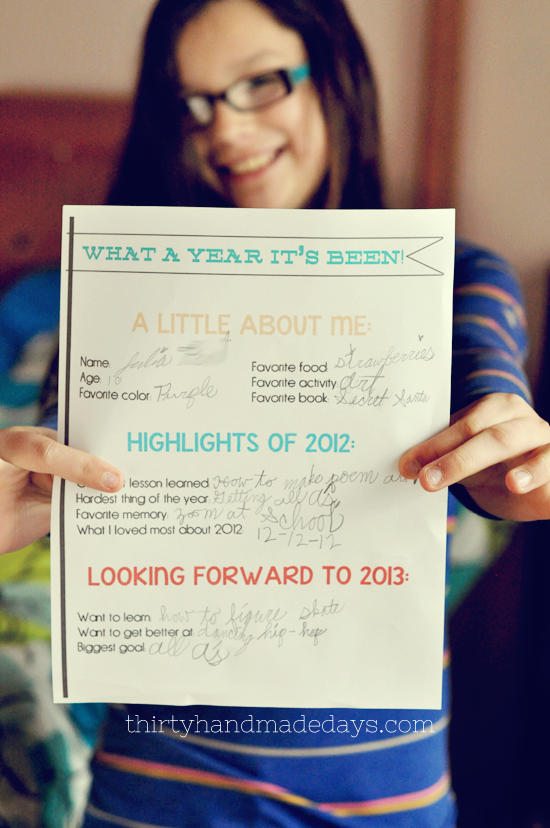 WHAT A YEAR IT'S BEEN!
A LITTLE ABOUT ME:
Name: Julia
Age: 10
Favorite color: Purple
Favorite food: strawberries
Favorite activity: art
Favorite book: Secret Santa
HIGHLIGHTS OF 2012:
lesson learned: How to make poem
Hardest thing of the year: Getting all a's
Favorite memory: zoom at School
What I loved most about 2012: 12-12-12
LOOKING FORWARD TO 2013:
Want to learn: how to figure skate
Want to get better at: dancing hip-hop
Biggest goal: all a's
thirtyhandmadedays.com